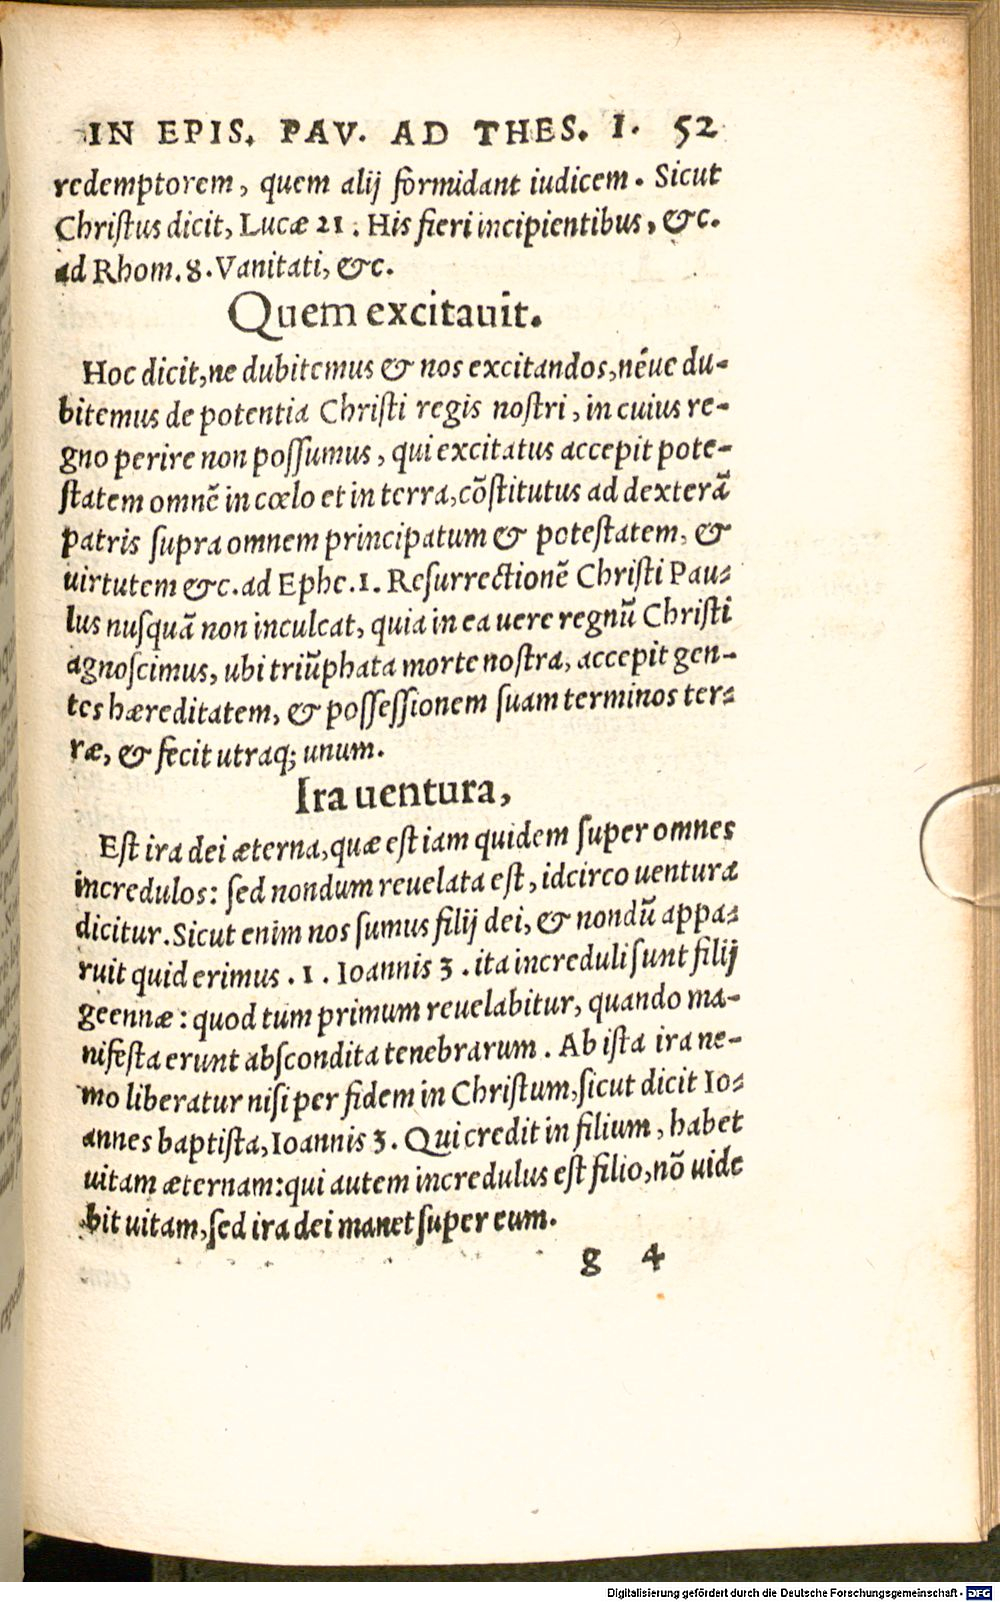 IN EPIS. PAV. AD THES. I. 52
redemptorem, quem alij formidant iudicem. Sicut
Christus dicit, Lucæ 21. His fieri incipientibus, &c.
ad Rhom. 8. Vanitati, &c.
Quem excitauit.
Hoc dicit, ne dubitemus & nos excitandos, néue du-
bitemus de potentia Christi regis nostri, in cuius re-
gno perire non possumus, qui excitatus accepit pote-
statem omnẽ in cœlo et in terra, cõstitutus ad dexterã
patris supra omnem principatum & potestatem, &
uirtutem &c. ad Ephe. 1. Resurrectionẽ Christi Pau-
lus nusquã non inculcat, quia in ea uere regnũ Christi
agnoscimus, ubi triũphata morte nostra, accepit gen-
tes hæreditatem, & possessionem suam terminos ter-
ræ, & fecit utraq; unum.
Ira uentura,
Est ira dei æterna, quæ est iam quidem super omnes
incredulos: sed nondum reuelata est, idcirco uentura
dicitur. Sicut enim nos sumus filij dei, & nondũ appa-
ruit quid erimus. 1. Ioannis 3. ita increduli sunt filij
geennæ: quod tum primum reuelabitur, quando ma-
nifesta erunt abscondita tenebrarum. Ab ista ira ne-
mo liberatur nisi per fidem in Christum, sicut dicit Io-
annes baptista, Ioannis 3. Qui credit in filium, habet
uitam æternam: qui autem incredulus est filio, nõ uide
bit uitam, sed ira dei manet super eum.
g 4
Digitalisierung gefördert durch die Deutsche Forschungsgemeinschaft - DFG